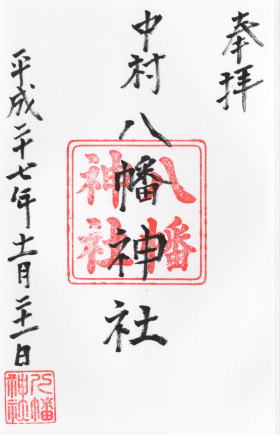 奉拝
中村八幡神社
八幡神社
平成二十七年十一月二十一日
八幡神社